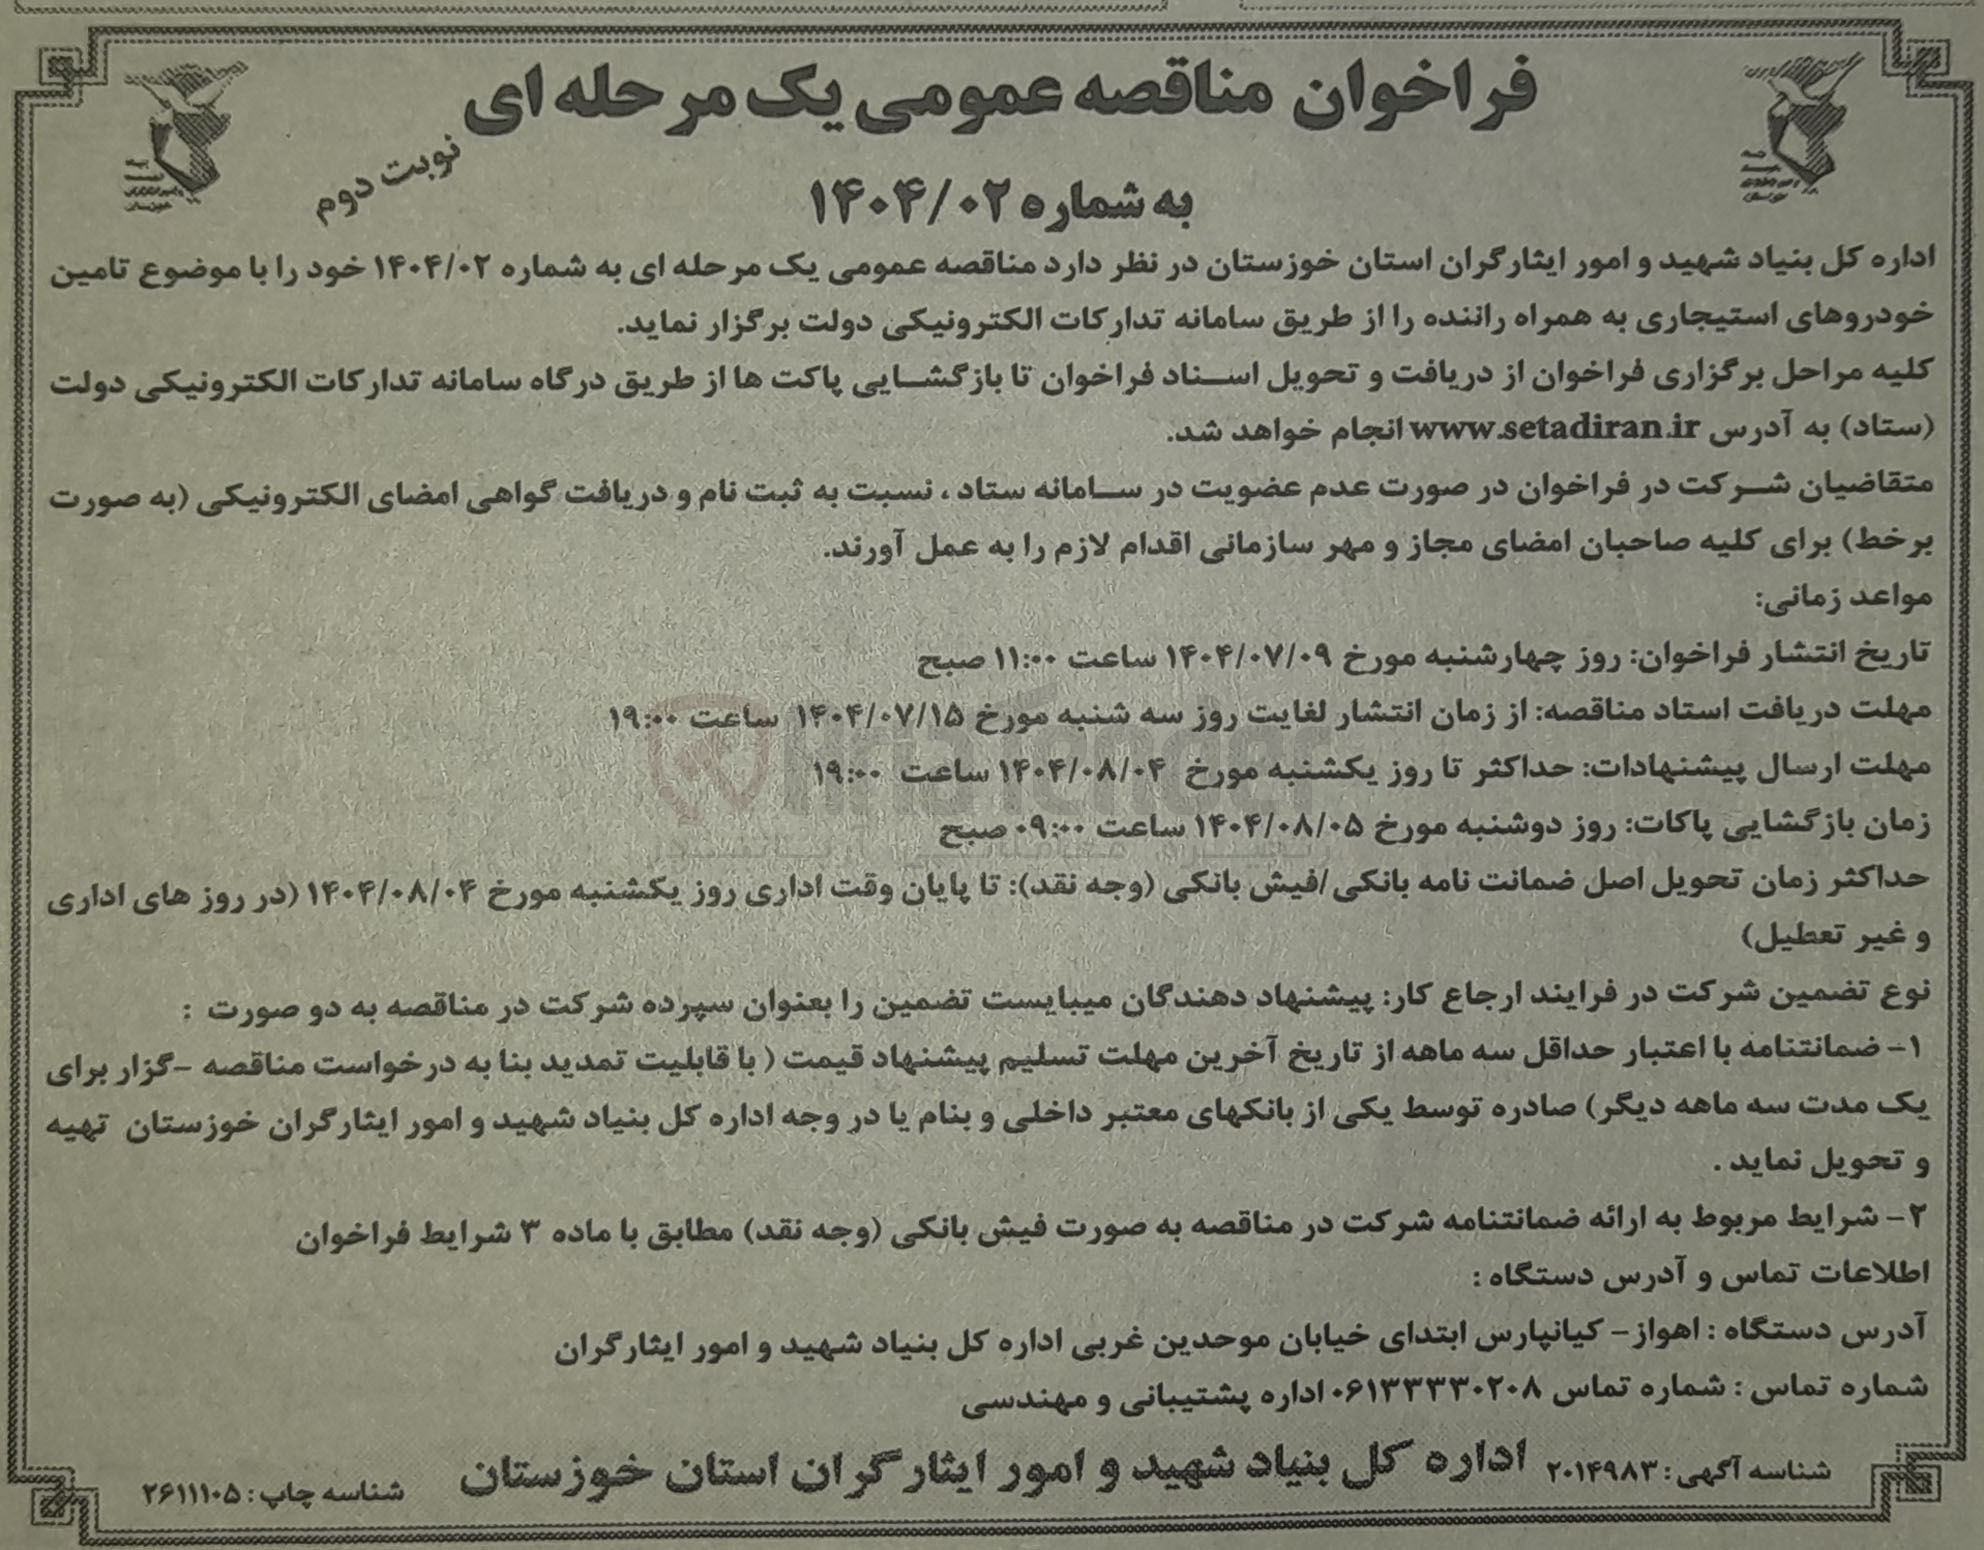 فراخوان مناقصه عمومی یک مرحله ای
نوبت دوم
به شماره ۱۴۰۴/۰۲
اداره کل بنیاد شهید و امور ایثارگران استان خوزستان در نظر دارد مناقصه عمومی یک مرحله ای به شماره ۱۴۰۴/۰۲ خود را با موضوع تامین
خودروهای استیجاری به همراه راننده را از طریق سامانه تدارکات الکترونیکی دولت برگزار نماید.
کلیه مراحل برگزاری فراخوان از دریافت و تحویل اسناد فراخوان تا بازگشایی پاکت ها از طریق درگاه سامانه تدارکات الکترونیکی دولت
(ستاد) به آدرس www.setadiran.ir انجام خواهد شد.
متقاضیان شرکت در فراخوان در صورت عدم عضویت در سامانه ستاد، نسبت به ثبت نام و دریافت گواهی امضای الکترونیکی (به صورت
برخط) برای کلیه صاحبان امضای مجاز و مهر سازمانی اقدام لازم را به عمل آورند.
مواعد زمانی:
تاریخ انتشار فراخوان: روز چهارشنبه مورخ ۱۴۰۴/۰۷/۰۹ ساعت ۱۱:۰۰ صبح
مهلت دریافت استاد مناقصه: از زمان انتشار لغایت روز سه شنبه مورخ ۱۴۰۴/۰۷/۱۵ ساعت ۱۹:۰۰
مهلت ارسال پیشنهادات: حداکثر تا روز یکشنبه مورخ ۱۴۰۴/۰۸/۰۴ ساعت ۱۹:۰۰
زمان بازگشایی پاکات: روز دوشنبه مورخ ۱۴۰۴/۰۸/۰۵ ساعت ۰۹:۰۰ صبح
حداکثر زمان تحویل اصل ضمانت نامه بانکی/فیش بانکی (وجه نقد): تا پایان وقت اداری روز یکشنبه مورخ ۱۴۰۴/۰۸/۰۴ (در روز های اداری
و غیر تعطیل)
نوع تضمین شرکت در فرایند ارجاع کار: پیشنهاد دهندگان میبایست تضمین را بعنوان سپرده شرکت در مناقصه به دو صورت :
۱- ضمانتنامه با اعتبار حداقل سه ماهه از تاریخ آخرین مهلت تسلیم پیشنهاد قیمت ( با قابلیت تمدید بنا به درخواست مناقصه -گزار برای
یک مدت سه ماهه دیگر) صادره توسط یکی از بانکهای معتبر داخلی و بنام یا در وجه اداره کل بنیاد شهید و امور ایثارگران خوزستان تهیه
و تحویل نماید .
۲- شرایط مربوط به ارائه ضمانتنامه شرکت در مناقصه به صورت فیش بانکی (وجه نقد) مطابق با ماده ۳ شرایط فراخوان
اطلاعات تماس و آدرس دستگاه :
آدرس دستگاه : اهواز- کیانپارس ابتدای خیابان موحدین غربی اداره کل بنیاد شهید و امور ایثارگران
شماره تماس : شماره تماس ۰۶۱۳۳۳۳۰۲۰۸ اداره پشتیبانی و مهندسی
شناسه آگهی: ۲۰۱۴۹۸۳ اداره کل بنیاد شهید و امور ایثارگران استان خوزستان شناسه چاپ: ۲۶۱۱۱۰۵
AriaTender